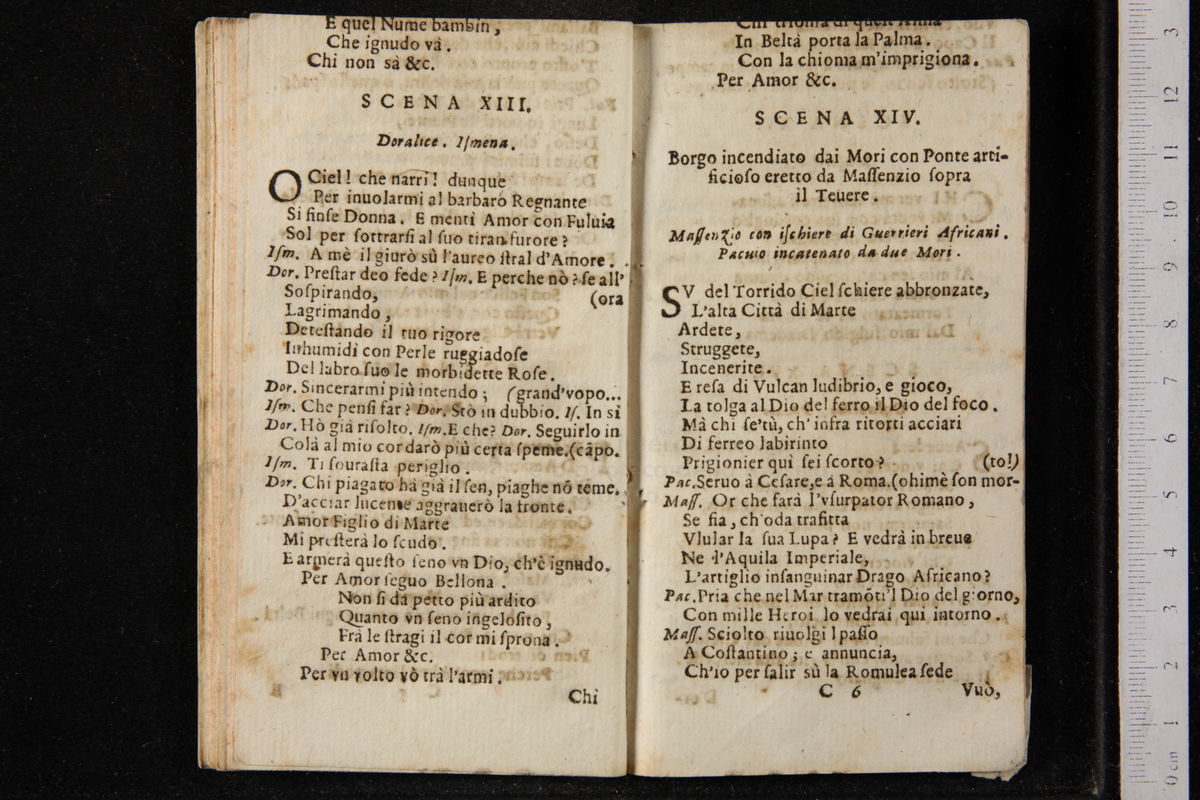 E quel Nume bambin,
Che ignudo và.
Chi non sà &c.
SCENA XIII.
Doralice. Iſmena.
O Ciel! che narri! dunque
Per inuolarmi al barbaro Regnante
Si finſe Donna. E mentì Amor con Fuluia
Sol per ſottrarſi al ſuo tiran furore?
Iſm. A mè il giurò sù l'aureo ſtral d'Amore.
Dor. Preſtar deo fede? Iſm. E perche nò? ſe all'
Soſpirando, (ora
Lagrimando,
Deteſtando il tuo rigore
Inhumidì con Perle ruggiadoſe
Del labro ſuo le morbidette Roſe.
Dor. Sincerarmi più intendo; (grand'vopo...
Iſm. Che penſi far? Dor. Stò in dubbio. Iſ. In sì
Dor. Hò già riſolto. Iſm. E che? Dor. Seguirlo in
Colà al mio cor darò più certa ſpeme. (cãpo.
Iſm. Ti ſouraſta periglio.
Dor. Chi piagato hà già il ſen, piaghe nõ teme.
D'acciar lucente aggrauerò la fronte.
Amor Figlio di Marte
Mi preſterà lo ſcudo.
E armerà queſto ſeno vn Dio, ch'è ignudo.
Per Amor ſeguo Bellona.
Non ſi da petto più ardito
Quanto vn ſeno ingeloſito,
Frà le ſtragi il cor mi ſprona.
Per Amor &c.
Per vn volto vò trà l'armi.
Chi
In Beltà porta la Palma.
Con la chioma m'imprigiona.
Per Amor &c.
SCENA XIV.
Borgo incendiato dai Mori con Ponte arti-
ficioſo eretto da Maſſenzio ſopra
il Teuere.
Maſſenzio con iſchiere di Guerrieri Africani.
Pacuio incatenato da due Mori.
SV del Torrido Ciel ſchiere abbronzate,
L'alta Città di Marte
Ardete,
Struggete,
Incenerite.
E reſa di Vulcan ludibrio, e gioco,
La tolga al Dio del ferro il Dio del foco.
Mà chi ſe'tù, ch'infra ritorti acciari
Di ferreo labirinto
Prigionier quì ſei ſcorto? (to!)
Pac. Seruo à Ceſare, e á Roma. (ohimè ſon mor-
Maſſ. Or che farà l'vſurpator Romano,
Se fia, ch'oda trafitta
Vlular la ſua Lupa? E vedrà in breue
Ne l'Aquila Imperiale,
L'artiglio inſanguinar Drago Africano?
Pac. Pria che nel Mar tramõti'l Dio del giorno,
Con mille Heroi lo vedrai quì intorno.
Maſſ. Sciolto riuolgi l paſſo
A Coſtantino; e annuncia,
Ch'io per ſalir sù la Romulea ſede
C 6 Vuò,